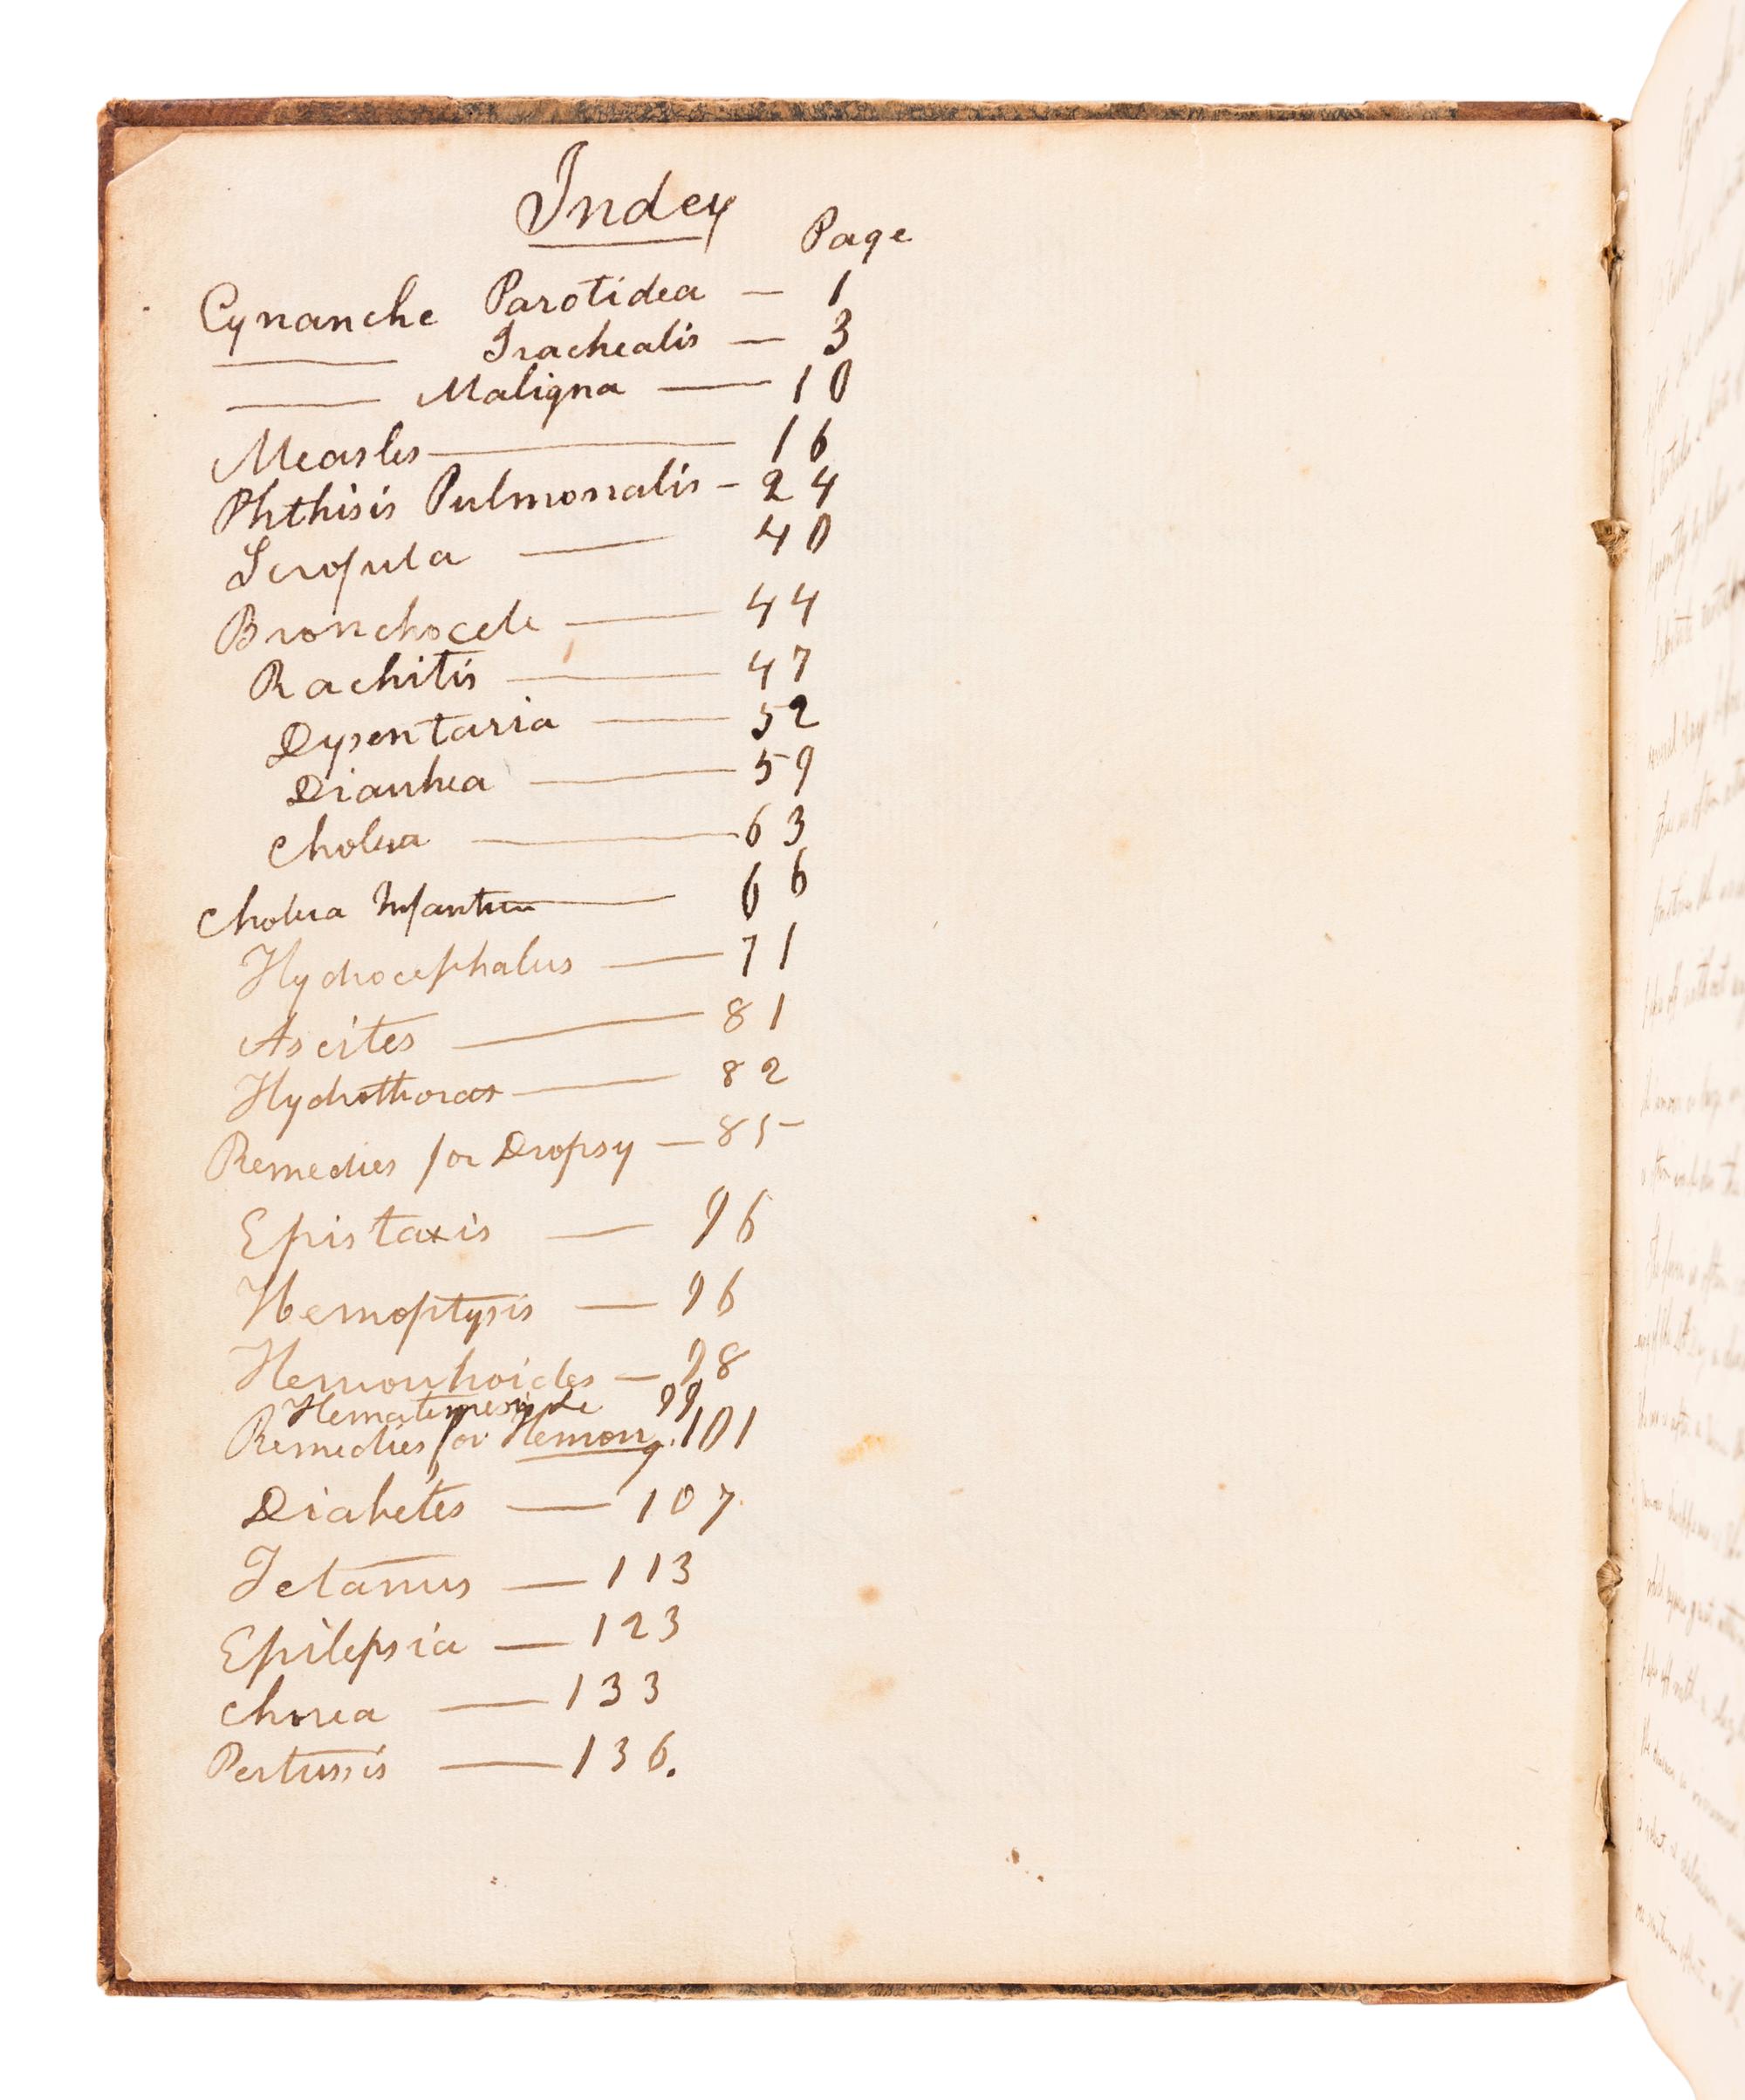 Index
Page
Cynanche Parotidea — 1
—— Trachealis — 3
—— Maligna —— 10
Measles —— 16
Phthisis Pulmonalis - 24
Scrofula —— 40
Bronchocele —— 44
Rachitis —— 47
Dysentaria —— 52
Diarrhea —— 59
Cholera —— 63
Cholera Infantum —— 66
Hydrocephalus —— 71
Ascites —— 81
Hydrothorax —— 82
Remedies for Dropsy — 85
Epistaxis — 96
Hemoptysis — 96
Hemorrhoides — 98
Hematemesis &c 99
Remedies for Hemorrg. 101
Diabetes — 107
Tetanus — 113
Epilepsia — 123
Chorea — 133
Pertussis — 136.